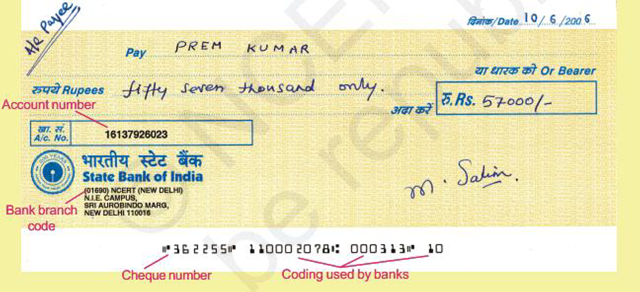 A/c Payee
दिनांक/Date 10/6/2006
Pay PREM KUMAR
या धारक को Or Bearer
रुपये Rupees fifty seven thousand only.
अदा करें रु. Rs. 57000/-
Account number
खा. सं.
A/c. No. 16137926023
भारतीय स्टेट बैंक
State Bank of India
(01690) NCERT (NEW DELHI)
N.I.E. CAMPUS,
SRI AUROBINDO MARG,
NEW DELHI 110016
Bank branch
code
M. Salim.
⑈362255⑈ 110002078⑆ 000313⑈ 10
Cheque number
Coding used by banks
© NCERT
be republi